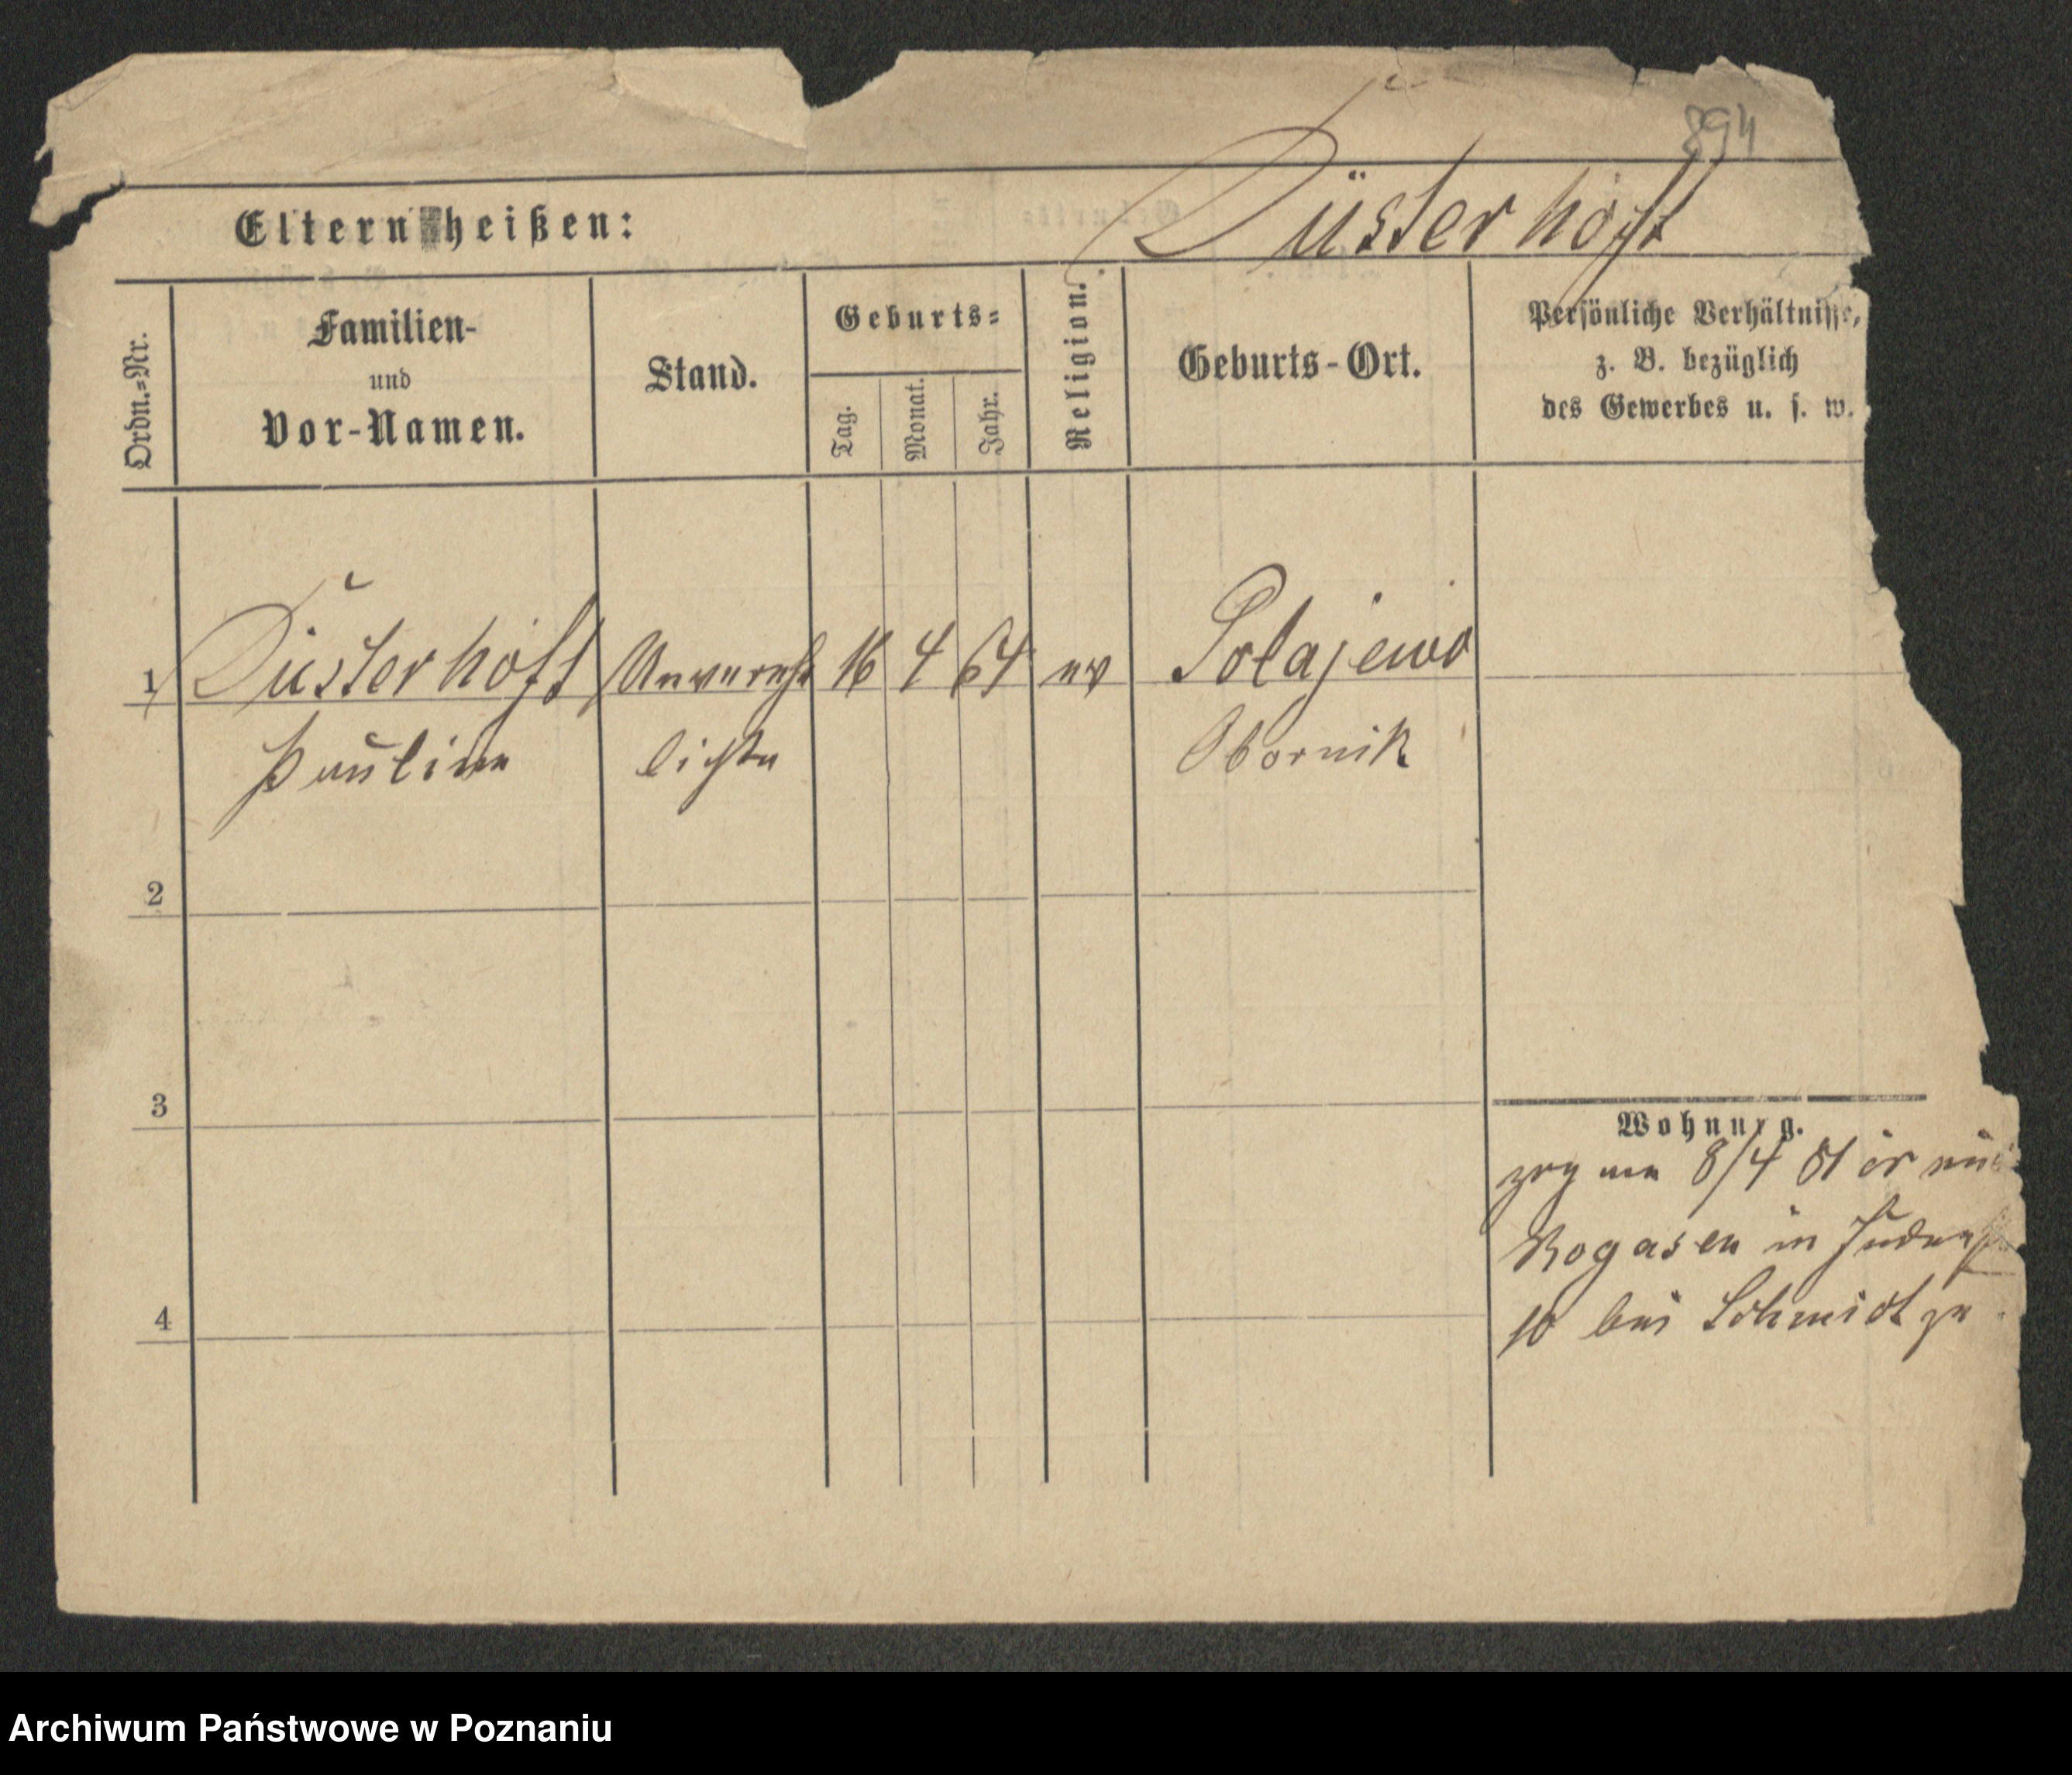 894
Eltern heißen:
Düsterhöft
Ordn.-Nr.
Familien-
und
Vor-Namen.
Stand.
Geburts-
Tag.
Monat.
Jahr.
Religion.
Geburts-Ort.
Persönliche Verhältnisse,
z. B. bezüglich
des Gewerbes u. s. w.
1 Düsterhöft Unvereh 16 4 64 ev Polajewo
Pauline lichte Obornik
2
3
4
Wohnung.
zog am 8/4 81 aus
Rogasen in Judenst
10 bei Schmidt zu
Archiwum Państwowe w Poznaniu